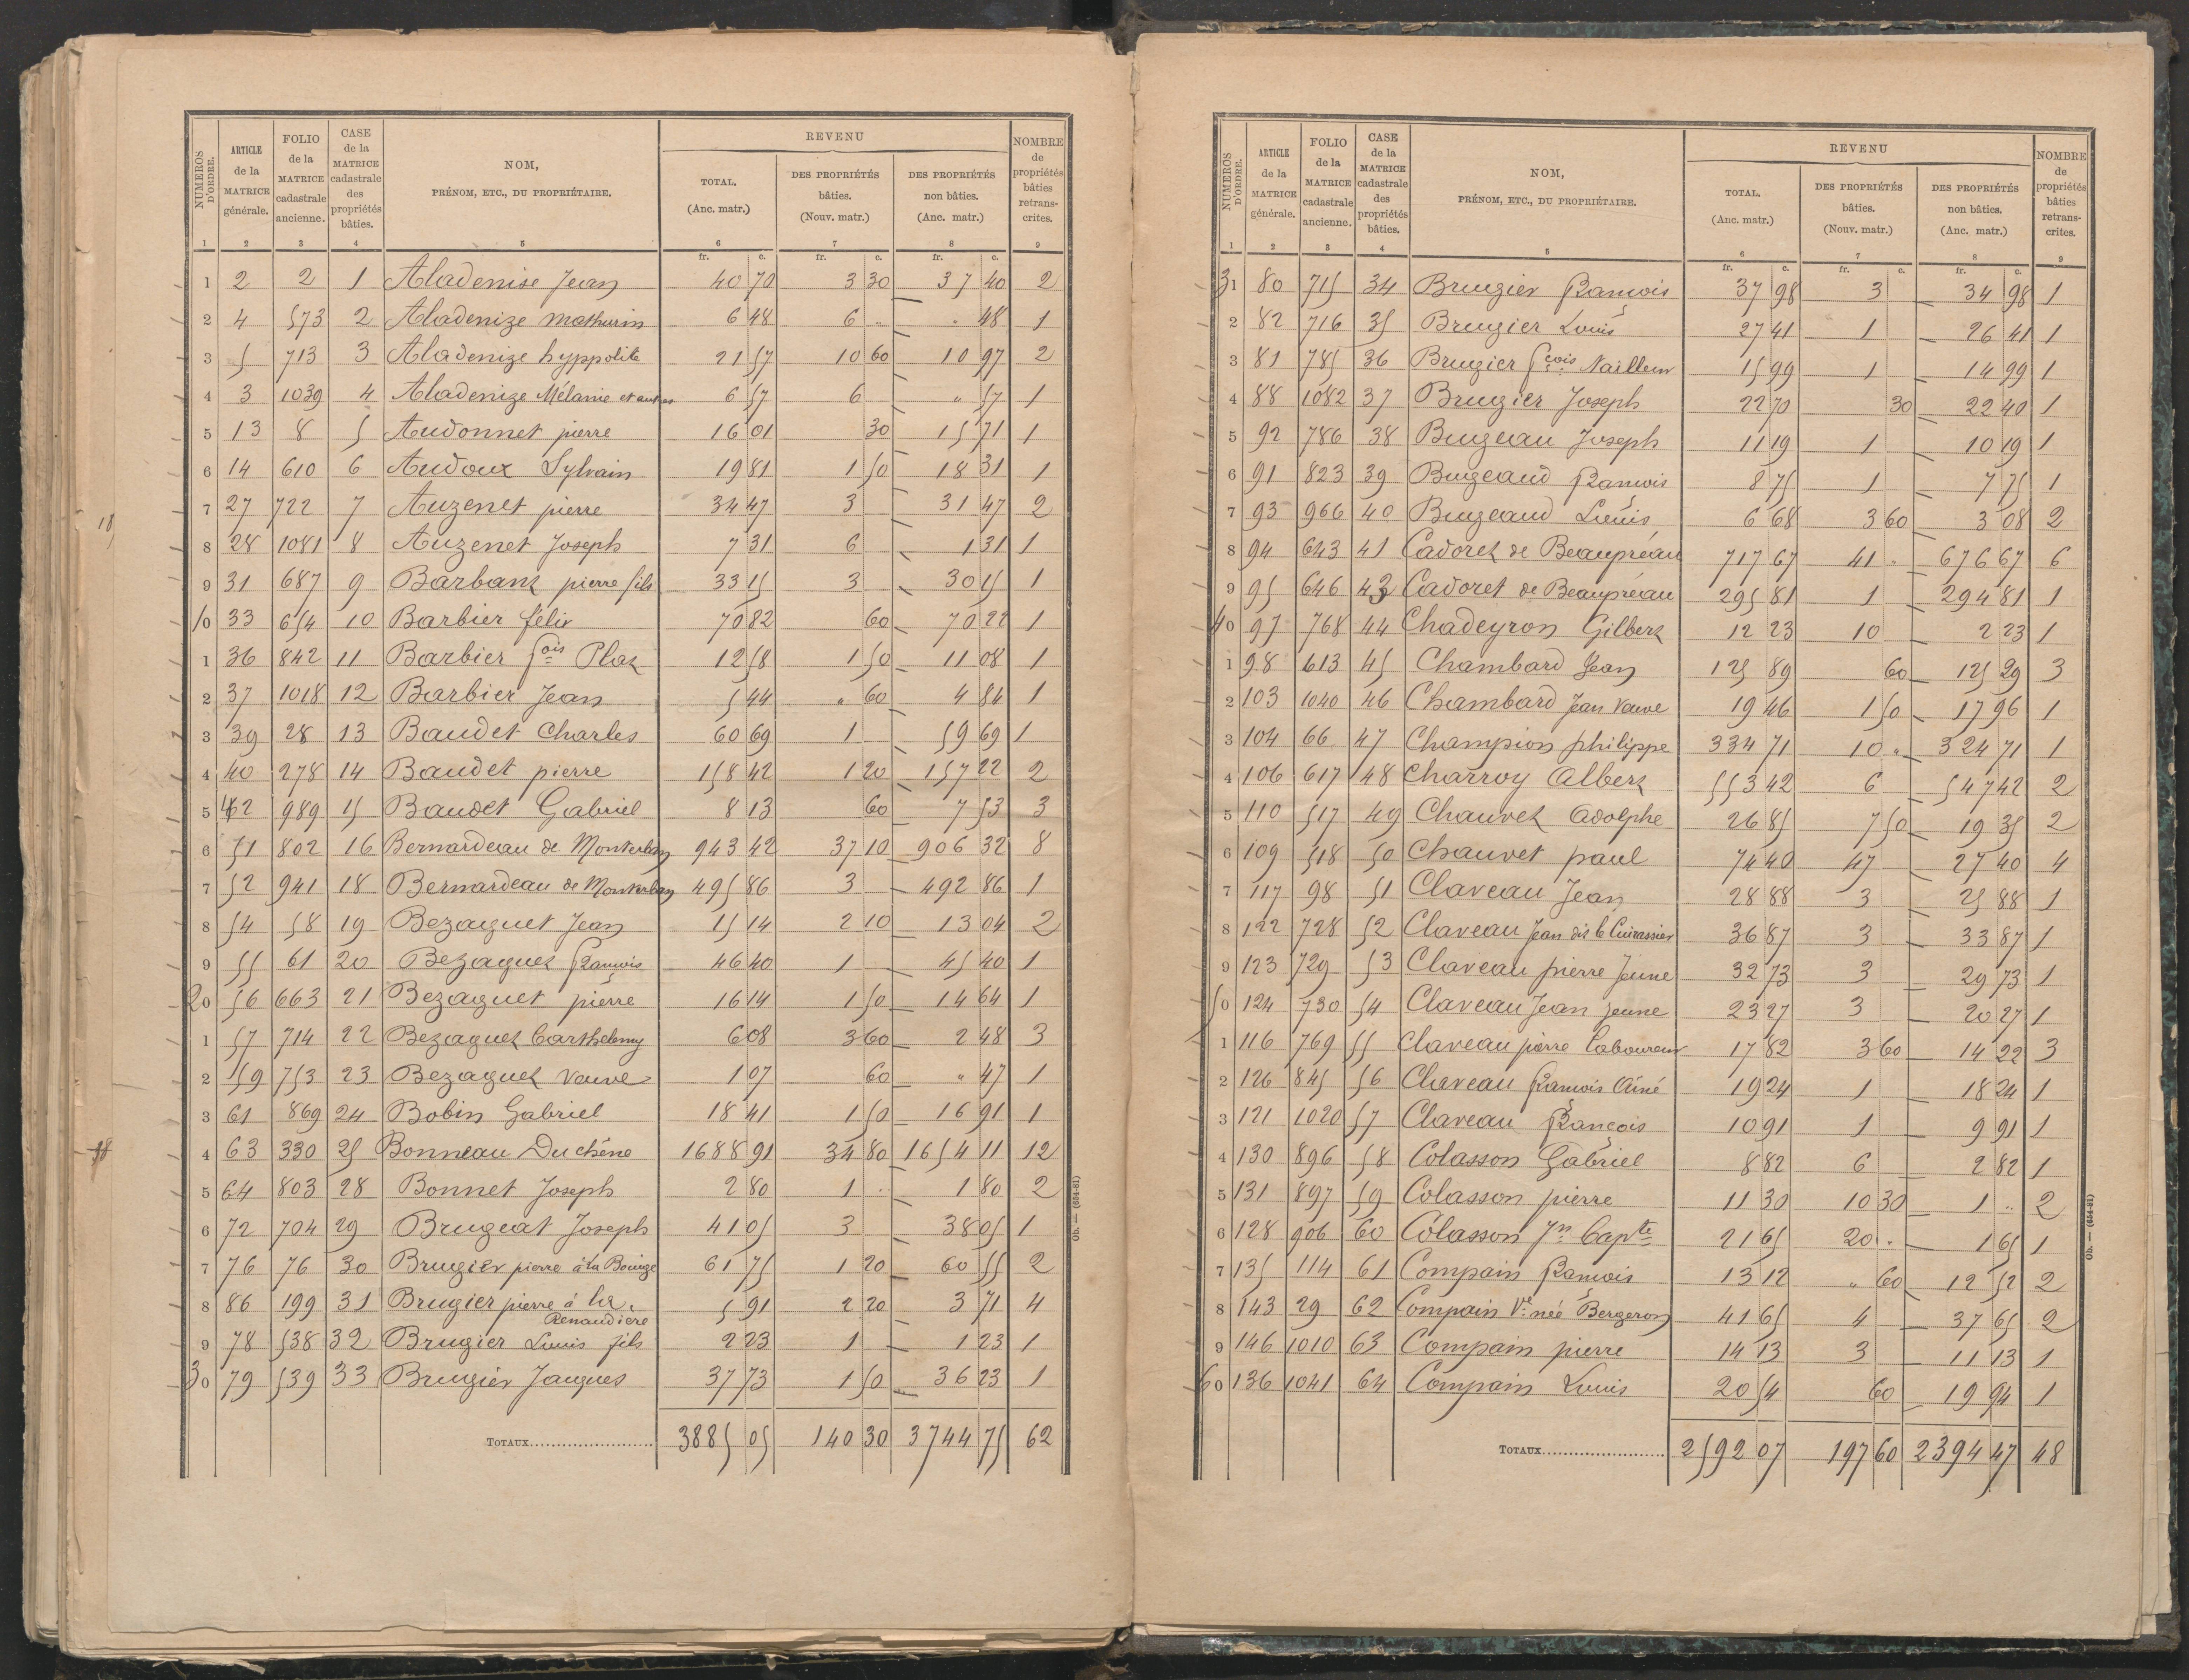 NUMÉROS D'ORDRE. | ARTICLE de la MATRICE générale. | FOLIO de la MATRICE cadastrale ancienne. | CASE de la MATRICE cadastrale des propriétés bâties. | NOM, PRÉNOM, ETC., DU PROPRIÉTAIRE. | REVENU TOTAL. (Anc. matr.) | DES PROPRIÉTÉS bâties. (Nouv. matr.) | DES PROPRIÉTÉS non bâties. (Anc. matr.) | NOMBRE de propriétés bâties retranscrites.
1 2 3 4 5 6 7 8 9
fr. c. fr. c. fr. c.
1 2 2 1 Aladenise Jean 40 70 3 30 37 40 2
2 4 573 2 Aladenize Mathurin 6 48 6 " " 48 1
3 5 713 3 Aladenize hyppolite 21 57 10 60 10 97 2
4 3 1039 4 Aladenize Mélanie et autres 6 57 6 " 57 1
5 13 8 5 Audonnet pierre 16 01 30 15 71 1
6 14 610 6 Audoux Sylvain 19 81 1 50 18 31 1
7 27 722 7 Auzenet pierre 34 47 3 31 47 2
8 28 1081 8 Auzenet Joseph 7 31 6 1 31 1
9 31 687 9 Barbant pierre fils 33 15 3 30 15 1
10 33 654 10 Barbier félix 70 82 60 70 22 1
1 36 842 11 Barbier fois Plat 12 58 1 50 11 08 1
2 37 1018 12 Barbier Jean 5 44 " 60 4 84 1
3 39 28 13 Baudet Charles 60 69 1 59 69 1
4 40 278 14 Baudet pierre 158 42 1 20 157 22 2
5 42 989 15 Baudet Gabriel 8 13 60 7 53 3
6 51 802 16 Bernardeau de Monterban 943 42 37 10 906 32 8
7 52 941 18 Bernardeau de Monterban 495 86 3 492 86 1
8 54 58 19 Bezaguet Jean 15 14 2 10 13 04 2
9 55 61 20 Bezaguet françois 46 40 1 45 40 1
20 56 663 21 Bezaguet pierre 16 14 1 50 14 64 1
1 57 714 22 Bezaguet barthelemy 6 08 3 60 2 48 3
2 59 753 23 Bezaguet veuve 1 07 60 " 47 1
3 61 869 24 Bobin Gabriel 18 41 1 50 16 91 1
4 63 330 25 Bonneau Duchêne 1688 91 34 80 1654 11 12
5 64 803 28 Bonnet Joseph 2 80 1 " 1 80 2
6 72 704 29 Brugeat Joseph 41 05 3 38 05 1
7 76 76 30 Brugier pierre à la Bouige 61 75 1 20 60 55 2
8 86 199 31 Brugier pierre à la Renaudiere 5 91 2 20 3 71 4
9 78 538 32 Brugier Louis fils 2 23 1 1 23 1
30 79 539 33 Brugier Jacques 37 73 1 50 36 23 1
TOTAUX 3885 05 140 30 3744 75 62
Ob. — (654-81)
NUMÉROS D'ORDRE. | ARTICLE de la MATRICE générale. | FOLIO de la MATRICE cadastrale ancienne. | CASE de la MATRICE cadastrale des propriétés bâties. | NOM, PRÉNOM, ETC., DU PROPRIÉTAIRE. | REVENU TOTAL. (Anc. matr.) | DES PROPRIÉTÉS bâties. (Nouv. matr.) | DES PROPRIÉTÉS non bâties. (Anc. matr.) | NOMBRE de propriétés bâties retranscrites.
1 2 3 4 5 6 7 8 9
fr. c. fr. c. fr. c.
31 80 715 34 Brugier françois 37 98 3 34 98 1
2 82 716 35 Brugier Louis 27 41 1 26 41 1
3 81 785 36 Brugier fçois Nailleur 15 99 1 14 99 1
4 88 1082 37 Brugier Joseph 22 70 30 22 40 1
5 92 786 38 Bugeau Joseph 11 19 1 10 19 1
6 91 823 39 Bugeaud françois 8 75 1 7 75 1
7 93 966 40 Bugeaud Louis 6 68 3 60 3 08 2
8 94 643 41 Cadoret de Beaupréau 717 67 41 " 676 67 6
9 95 646 43 Cadoret de Beaupréau 295 81 1 294 81 1
40 97 768 44 Chadeyron Gilbert 12 23 10 2 23 1
1 98 613 45 Chambard Jean 125 89 60 125 29 3
2 103 1040 46 Chambard Jean veuve 19 46 1 50 17 96 1
3 104 66 47 Champion philippe 334 71 10 " 324 71 1
4 106 617 48 Charroy Albert 553 42 6 547 42 2
5 110 517 49 Chauvet Adolphe 26 85 7 50 19 35 2
6 109 518 50 Chauvet paul 74 40 47 27 40 4
7 117 98 51 Claveau Jean 28 88 3 25 88 1
8 122 728 52 Claveau Jean dit le Cuirassier 36 87 3 33 87 1
9 123 729 53 Claveau pierre Jeune 32 73 3 29 73 1
50 124 730 54 Claveau Jean jeune 23 27 3 20 27 1
1 116 769 55 Claveau pierre laboureur 17 82 3 60 14 22 3
2 126 845 56 Claveau françois Aîné 19 24 1 18 24 1
3 121 1020 57 Claveau françois 10 91 1 9 91 1
4 130 896 58 Colasson Gabriel 8 82 6 2 82 1
5 131 897 59 Colasson pierre 11 30 10 30 1 " 2
6 128 906 60 Colasson Jn Bapte 21 65 20 " 1 65 1
7 135 114 61 Compain françois 13 12 " 60 12 52 2
8 143 29 62 Compain Ve née Bergeron 41 65 4 37 65 2
9 146 1010 63 Compain pierre 14 13 3 11 13 1
60 136 1041 64 Compain Louis 20 54 60 19 94 1
TOTAUX 2592 07 197 60 2394 47 48
Ob. — (654-81)